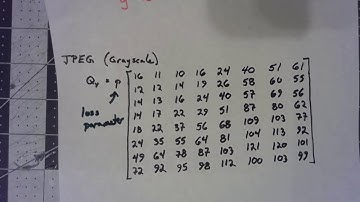 JPEG (Grayscale)
Qᵧ = p
loss
parameter
16 11 10 16 24 40 51 61
12 12 14 19 26 58 60 55
14 13 16 24 40 57 69 56
14 17 22 29 51 87 80 62
18 22 37 56 68 109 103 77
24 35 55 64 81 104 113 92
49 64 78 87 103 121 120 101
72 92 95 98 112 100 103 99